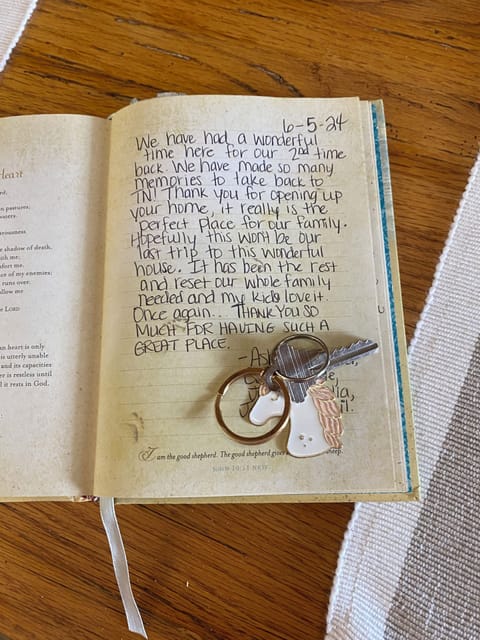 Heart
pastures;
waters.
shadow of death,
with me;
comfort me.
of my enemies;
runs over.
follow me
LORD
heart is only
is utterly unable
and its capacities
is restless until
it rests in God.
6-5-24
We have had a wonderful
time here for our 2nd time
back. We have made so many
memories to take back to
TN! Thank you for opening up
your home, it really is the
perfect place for our family.
Hopefully this wont be our
last trip to this wonderful
house. It has been the rest
and reset our whole family
needed and my kids love it.
Once again... THANK YOU SO
MUCH FOR HAVING SUCH A
GREAT PLACE.
I am the good shepherd. The good shepherd
JOHN 10:11 NKJV